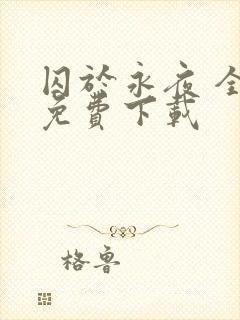 囚於永夜 全
免費下載
格魯